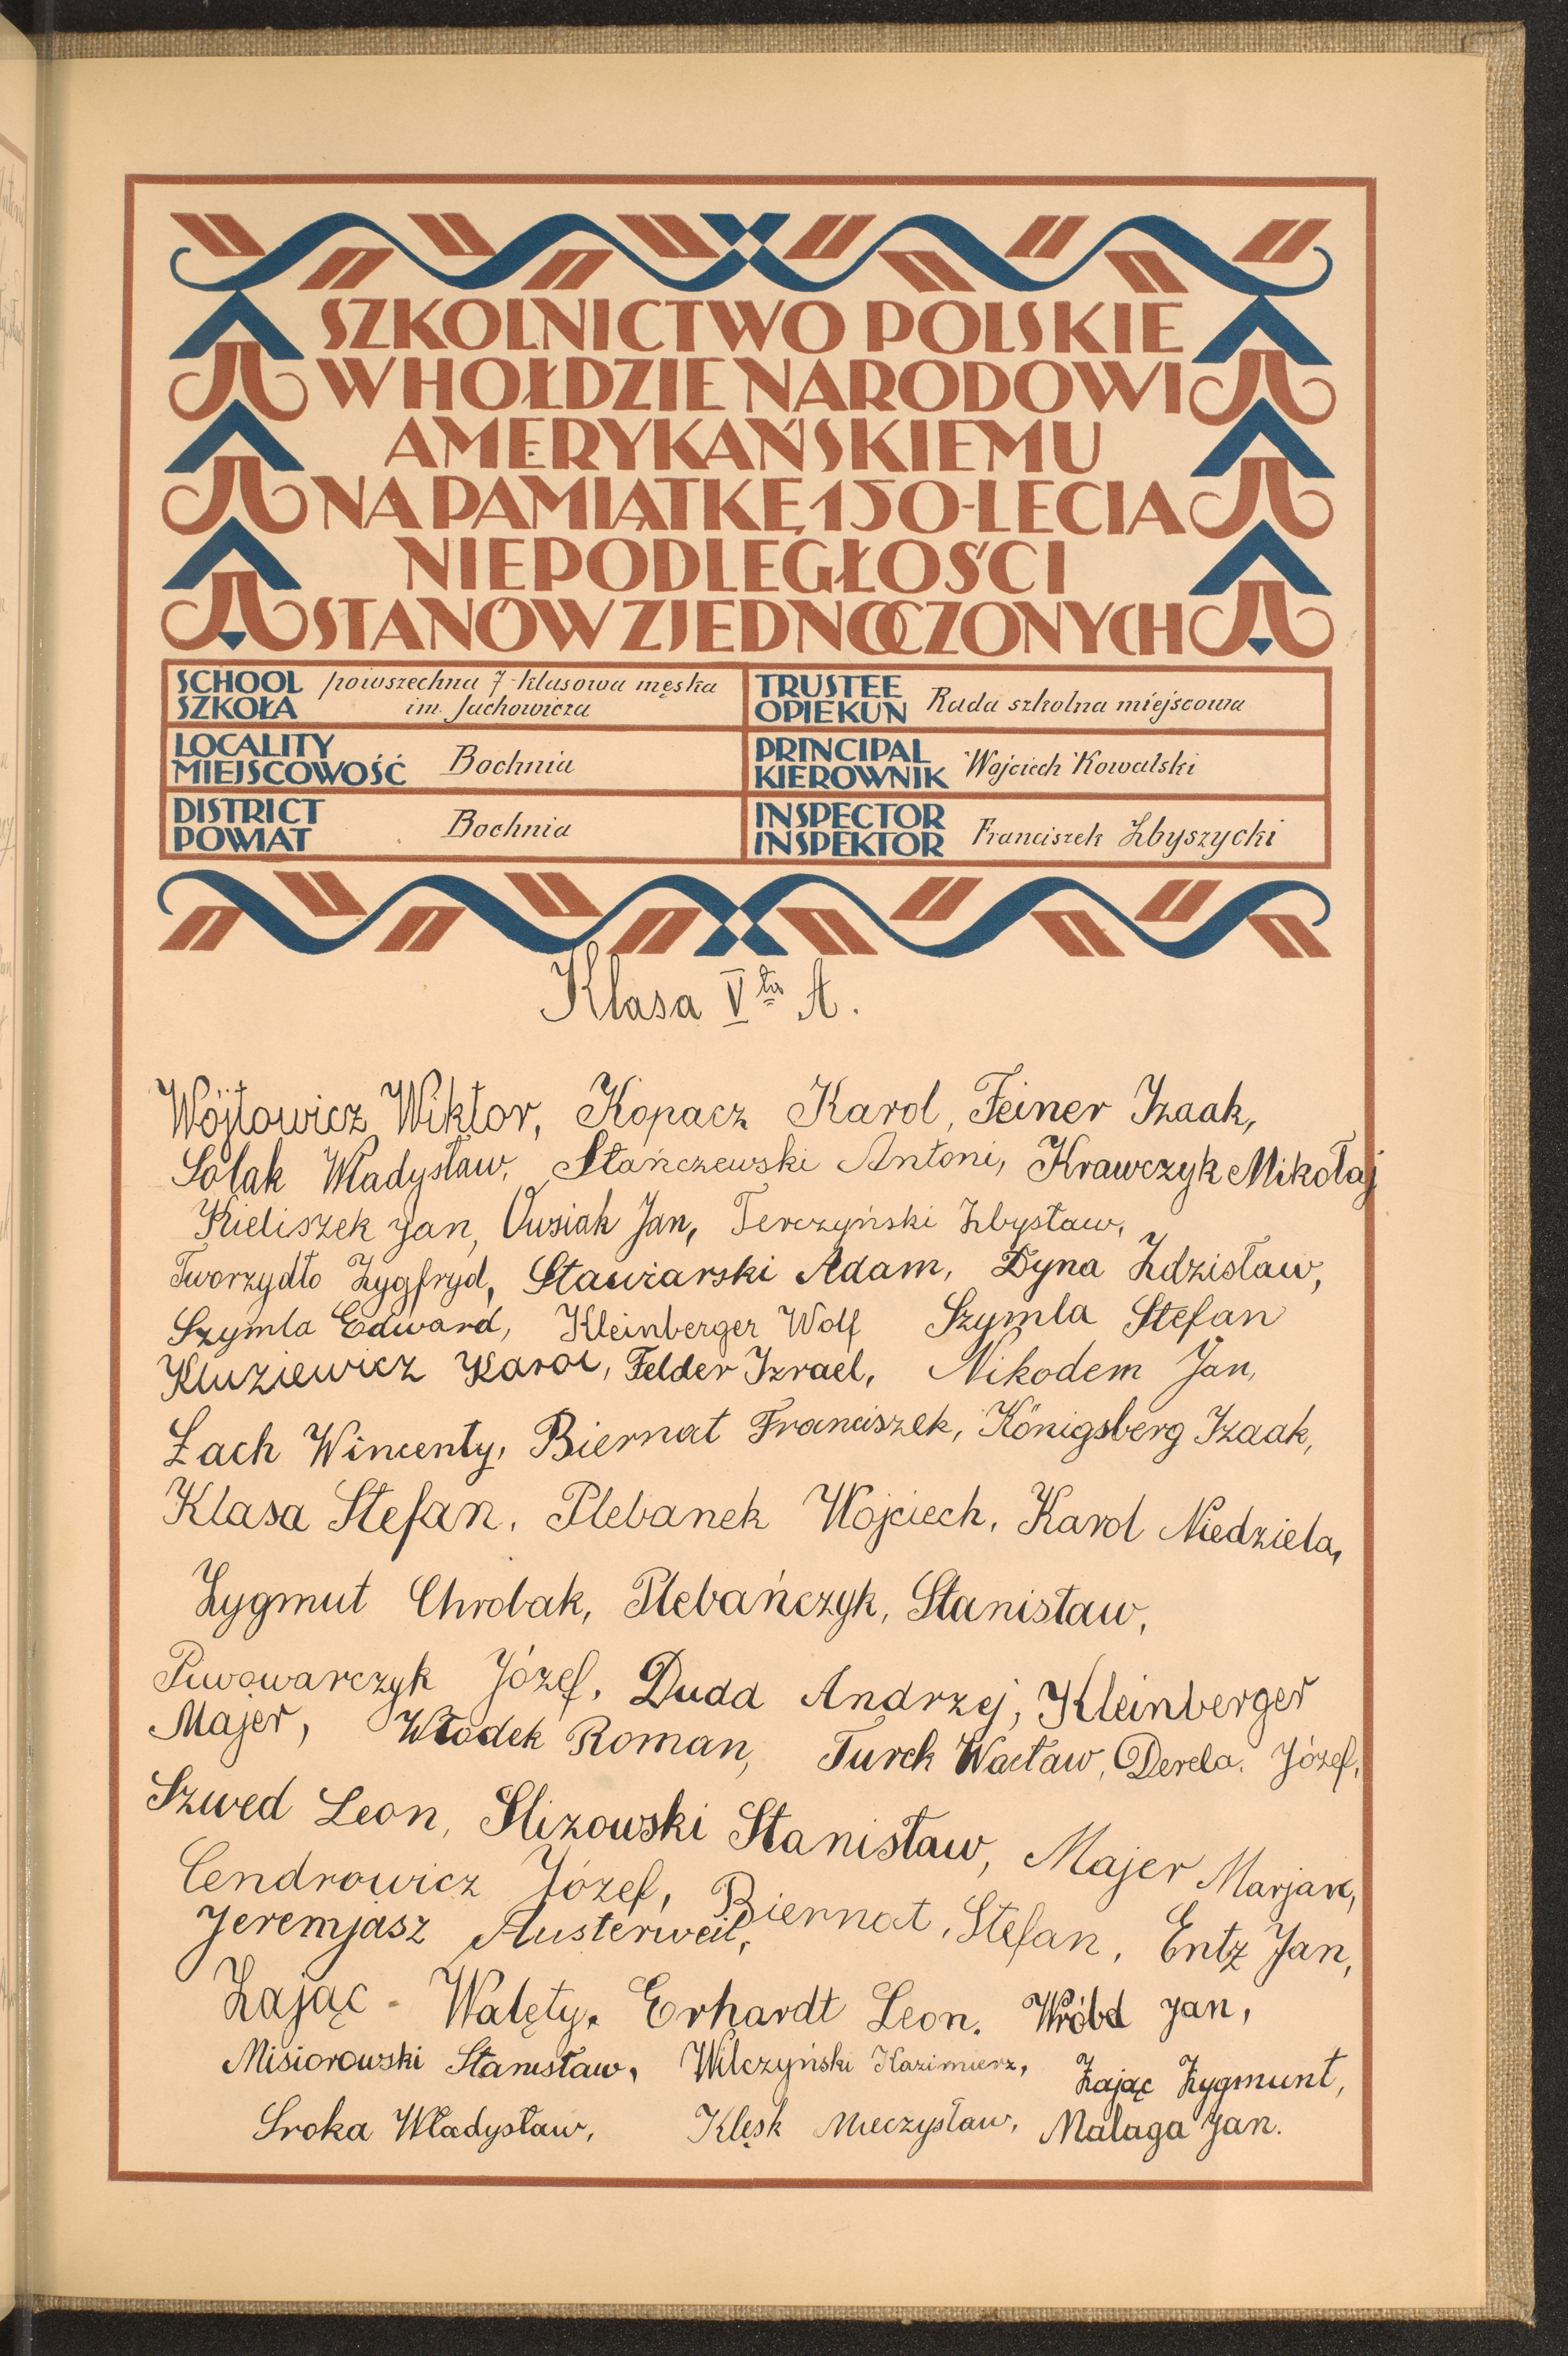 SZKOLNICTWO POLSKIE
W HOŁDZIE NARODOWI
AMERYKAŃSKIEMU
NA PAMIĄTKĘ 150-LECIA
NIEPODLEGŁOŚCI
STANÓW ZJEDNOCZONYCH
SCHOOL
SZKOŁA
powszechna 7-klasowa męska
im. Jachowicza
TRUSTEE
OPIEKUN
Rada szkolna miejscowa
LOCALITY
MIEJSCOWOŚĆ
Bochnia
PRINCIPAL
KIEROWNIK
Wojciech Kowalski
DISTRICT
POWIAT
Bochnia
INSPECTOR
INSPEKTOR
Franciszek Zbyszycki
Klasa Vta A.
Wójtowicz Wiktor, Kopacz Karol, Feiner Izaak,
Solak Władysław, Stańczewski Antoni, Krawczyk Mikołaj
Kieliszek Jan, Owsiak Jan, Terczyński Zbysław,
Tworzydło Zygfryd, Stawiarski Adam, Dyna Zdzisław,
Szymla Edward, Kleinberger Wolf Szymla Stefan
Kluziewicz Karol, Felder Izrael, Nikodem Jan,
Łach Wincenty, Biernat Franciszek, Königsberg Izaak,
Klasa Stefan, Plebanek Wojciech, Karol Niedziela,
Zygmut Chrobak, Plebańczyk, Stanisław,
Piwowarczyk Józef, Duda Andrzej, Kleinberger
Majer, Włodek Roman, Turek Wacław, Derela. Józef,
Szwed Leon, Slizowski Stanisław, Majer Marjan,
Cendrowicz Józef, Biernat, Stefan, Entz Jan,
Jeremjasz Austerweil,
Zając - Walęty, Erhardt Leon. Wróbel Jan,
Misiorowski Stanisław, Wilczyński Kazimierz, Zając Zygmunt,
Sroka Władysław, Klęsk Mieczysław, Malaga Jan.